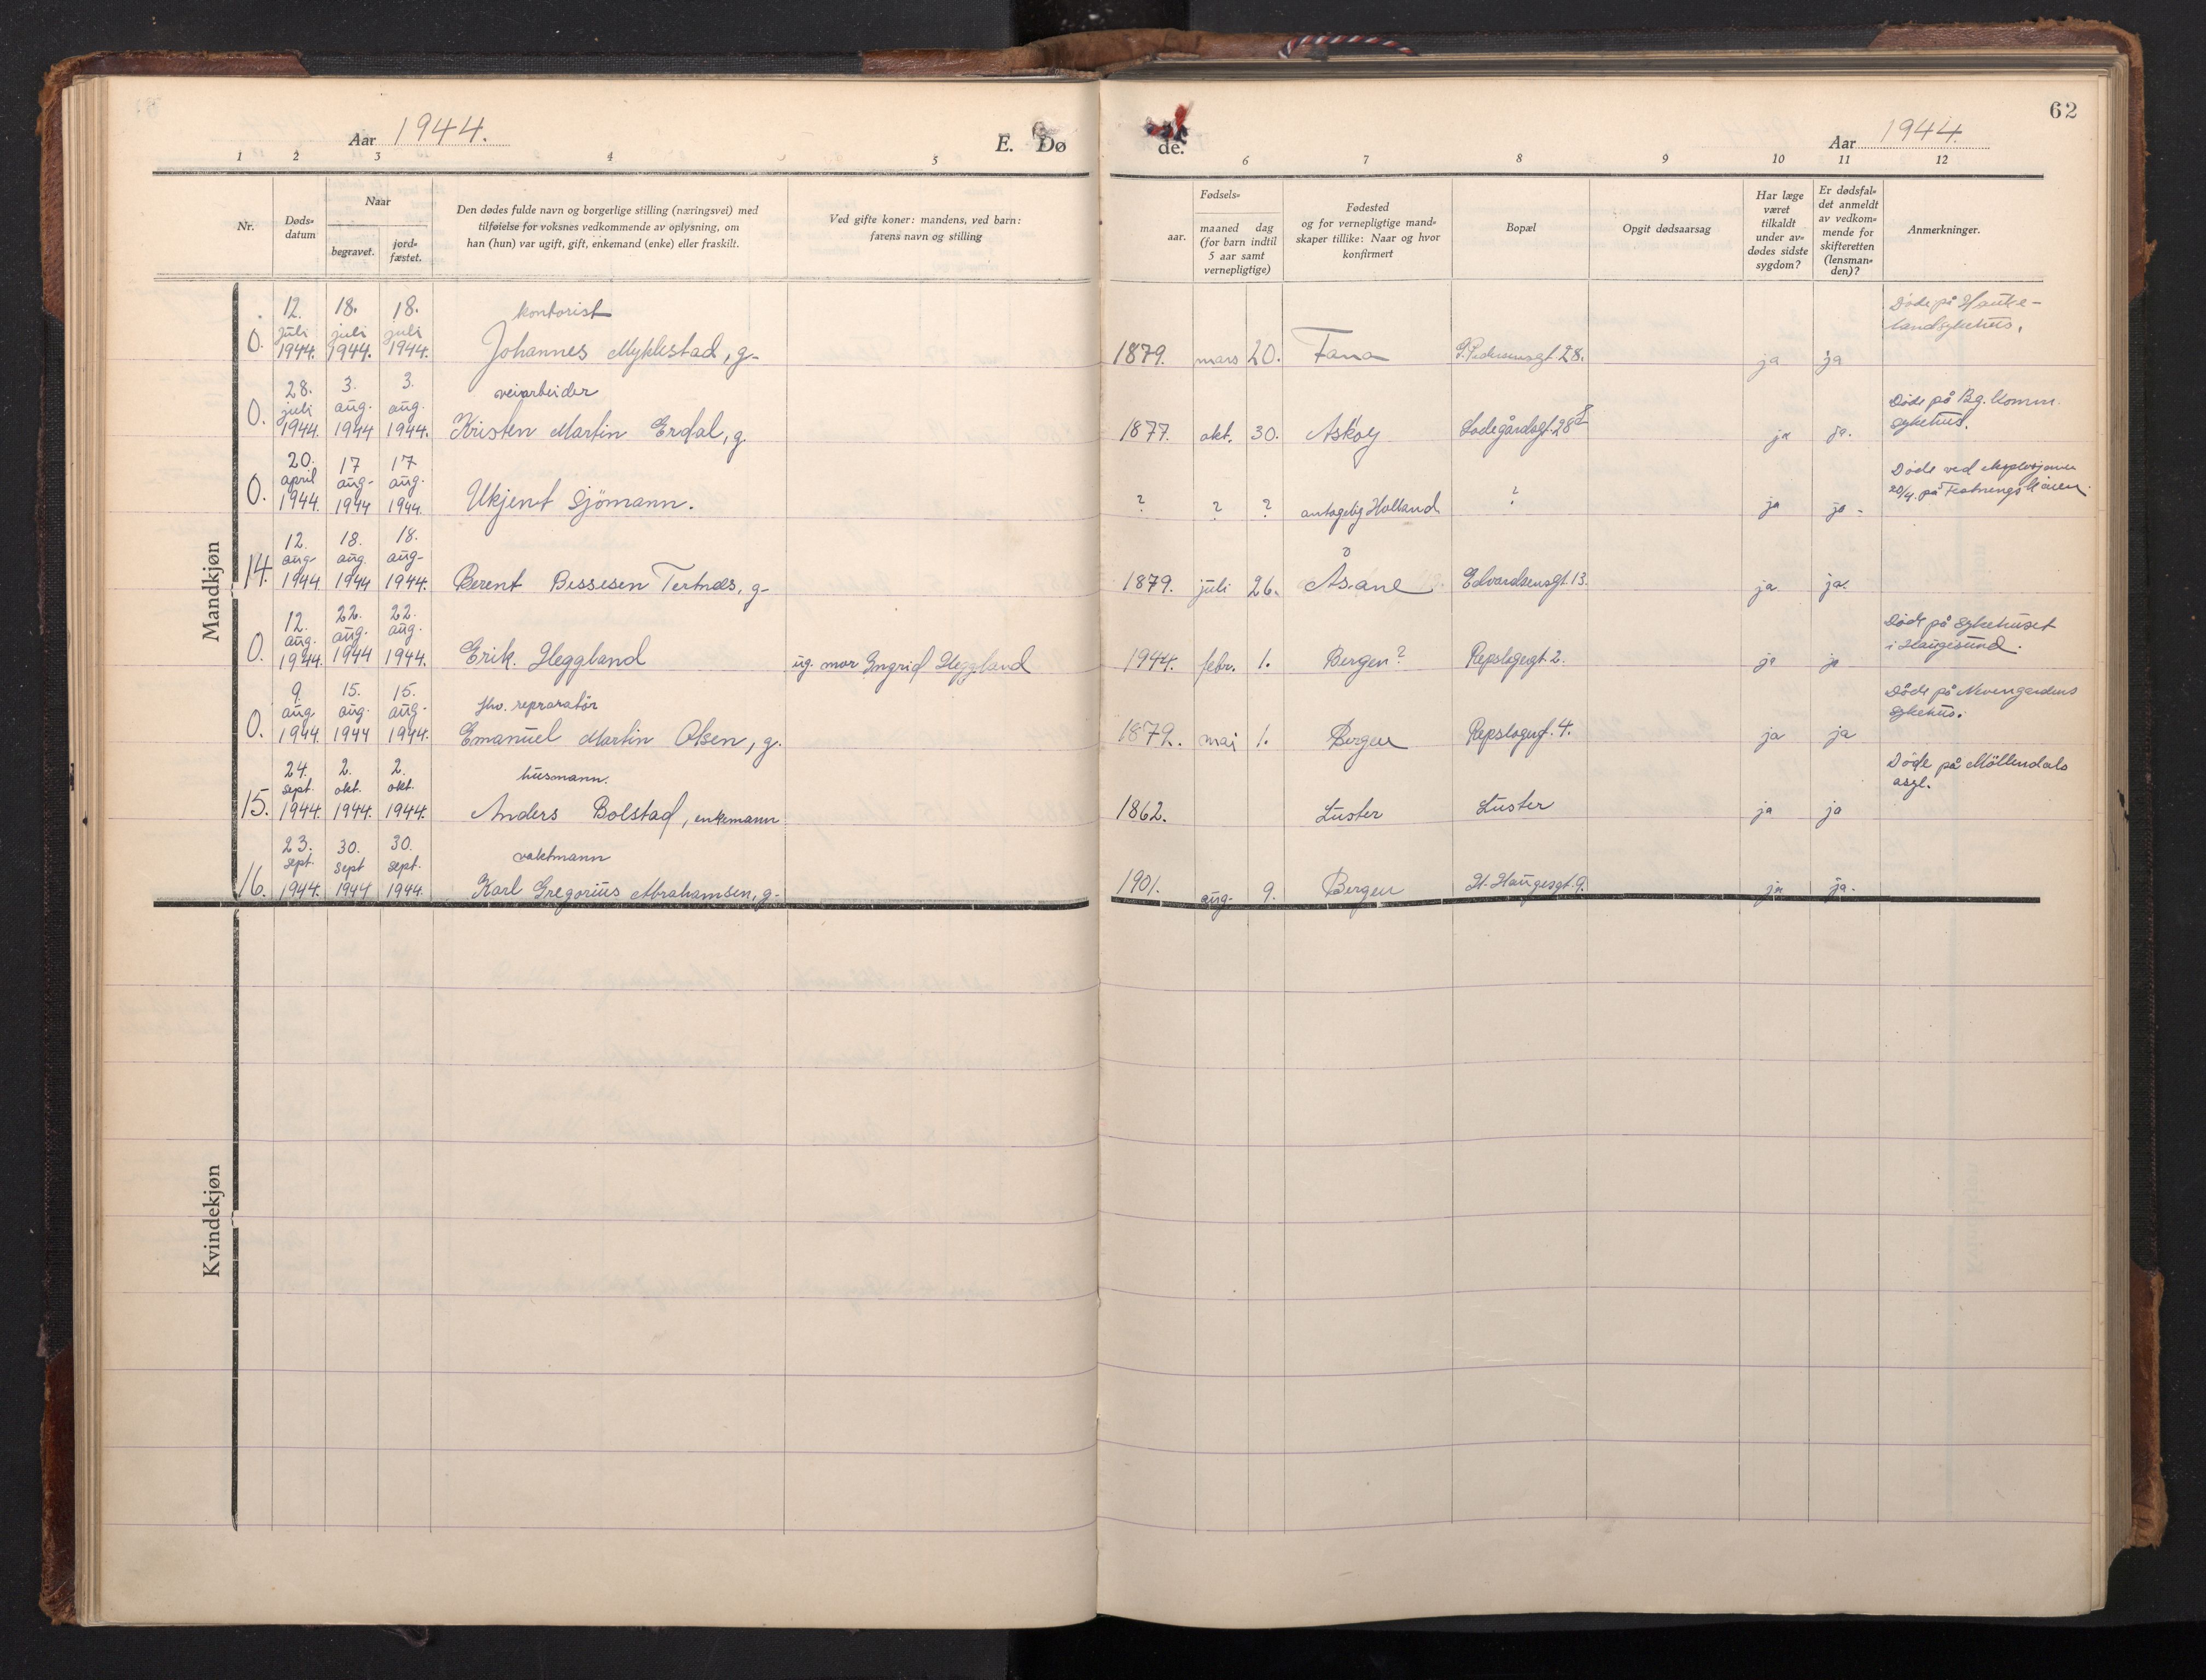 62
Aar 1944.
E. Dø
de.
Aar 1944.
1 2 3 4 5 6 7 8 9 10 11 12
Nr.
Døds-
datum
Naar
begravet.
jord-
fæstet.
Den dødes fulde navn og borgerlige stilling (næringsvei) med
tilføielse for voksnes vedkommende av oplysning, om
han (hun) var ugift, gift, enkemand (enke) eller fraskilt.
Ved gifte koner: mandens, ved barn:
farens navn og stilling
Fødsels-
aar.
maaned dag
(for barn indtil
5 aar samt
vernepligtige)
Fødested
og for vernepligtige mand-
skaper tillike: Naar og hvor
konfirmert
Bopæl
Opgit dødsaarsag
Har læge
været
tilkaldt
under av-
dødes sidste
sygdom?
Er dødsfal-
det anmeldt
av vedkom-
mende for
skifteretten
(lensman-
den)?
Anmerkninger.
Mandkjøn
12. 18. 18. kontorist Døde på Hauke-
juli juli juli landsykehus.
0. 1944. 1944. 1944. Johannes Myklestad, g- 1879. mars 20. Fana 28. ja ja
28. 3. 3. veiarbeider Døde på Bg. Komm.
juli aug. aug. sykehus.
0. 1944. 1944 1944. Kristen Martin Erdal, g. 1877. okt. 30. Askøy Ladegårdsgt. 28 ja ja.
20. 17 17 Døde ved eksplosjonen
april aug- aug. 20/4. på Festningskaien.
0. 1944. 1944 1944. Ukjent sjömann. ? ? ? antagelig Holland ? ja ja-
12. 18. 18.
aug- aug. aug-
14. 1944 1944 1944. Berent Bessesen Tertnæs, g- 1879. juli 26. Åsane Edvardsensgt. 13. ja ja.
12. 22. 22. Døde på sykehuset
aug. aug. aug. i Haugesund.
0. 1944. 1944 1944. Erik. Heggland ug. mor Ingrid Heggland 1944. febr. 1. Bergen? Repslagergt. 2. ja ja
9. 15. 15. reparatör Döde på Nevengardens
aug aug. aug- sykehus.
0. 1944. 1944 1944. Emanuel Martin Olsen, g. 1879. mai 1. Bergen 4. ja ja
24. 2. 2. husmann. Döde på Möllendals
sept. okt. okt. asyl.
15. 1944. 1944. 1944. Anders Bolstad, enkemann 1862. Luster Luster ja ja
23. 30. 30. vaktmann
sept. sept sept.
16. 1944. 1944 1944. Karl Gregorius Abrahamsen, g- 1901. aug- 9. Bergen H. Haugesgt. 9. ja ja.
Kvindekjøn